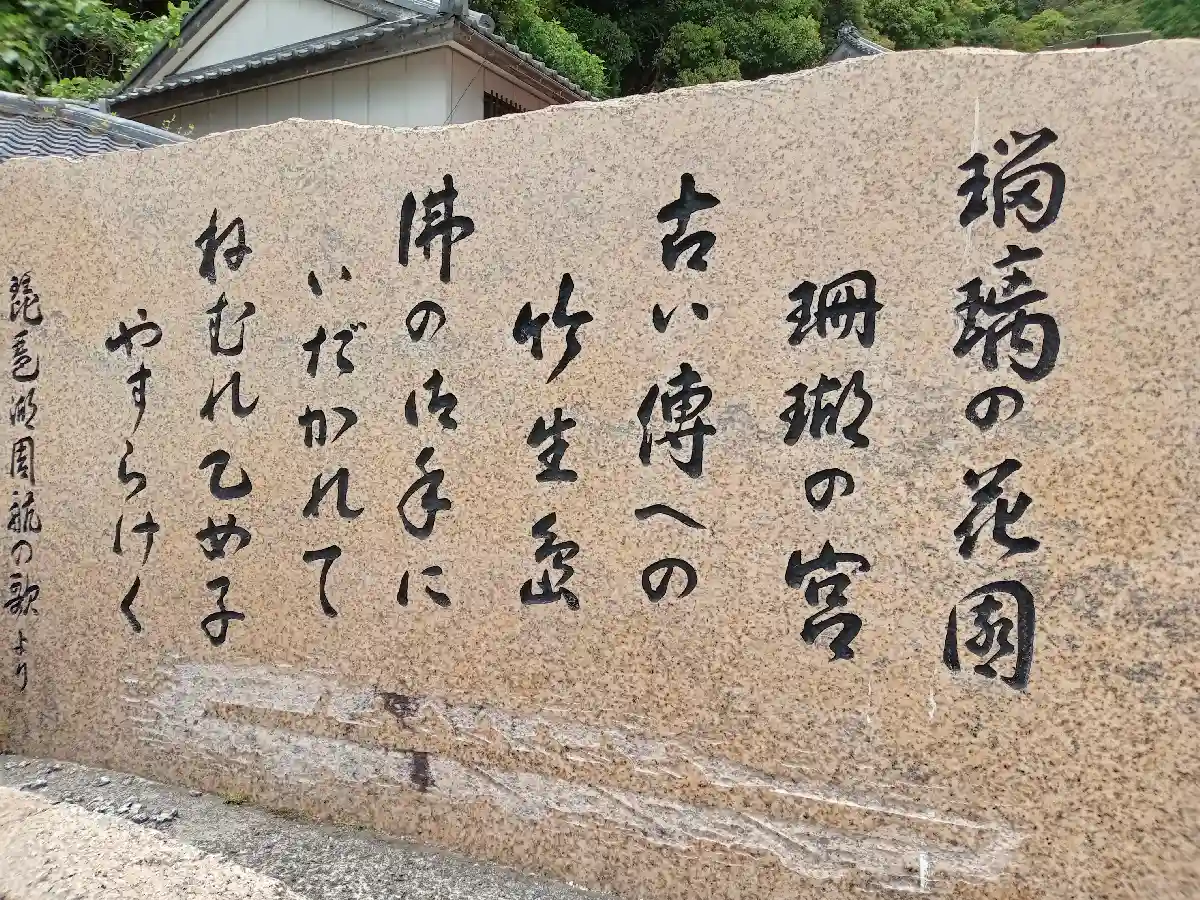 瑠璃の花園
珊瑚の宮
古い傳への
竹生島
佛の御手に
いだかれて
ねむれ乙め子
やすらけく
琵琶湖周航の歌より